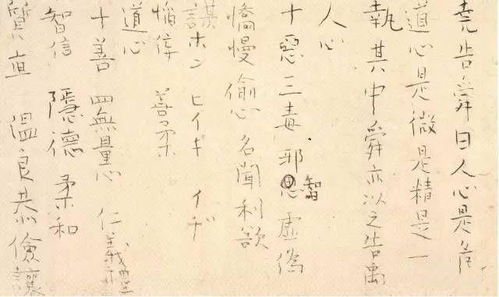 堯告舜曰人心是危
道心是微是精是一
執其中舜亦以之告禹
人心
十惡三毒 邪智虚偽
憍慢偸心名聞利欲
謀ホン ヒイギ イヂ
善柔
道心
十善 四無量心 仁義禮
智信 隠德 柔和
質直 温良恭儉讓